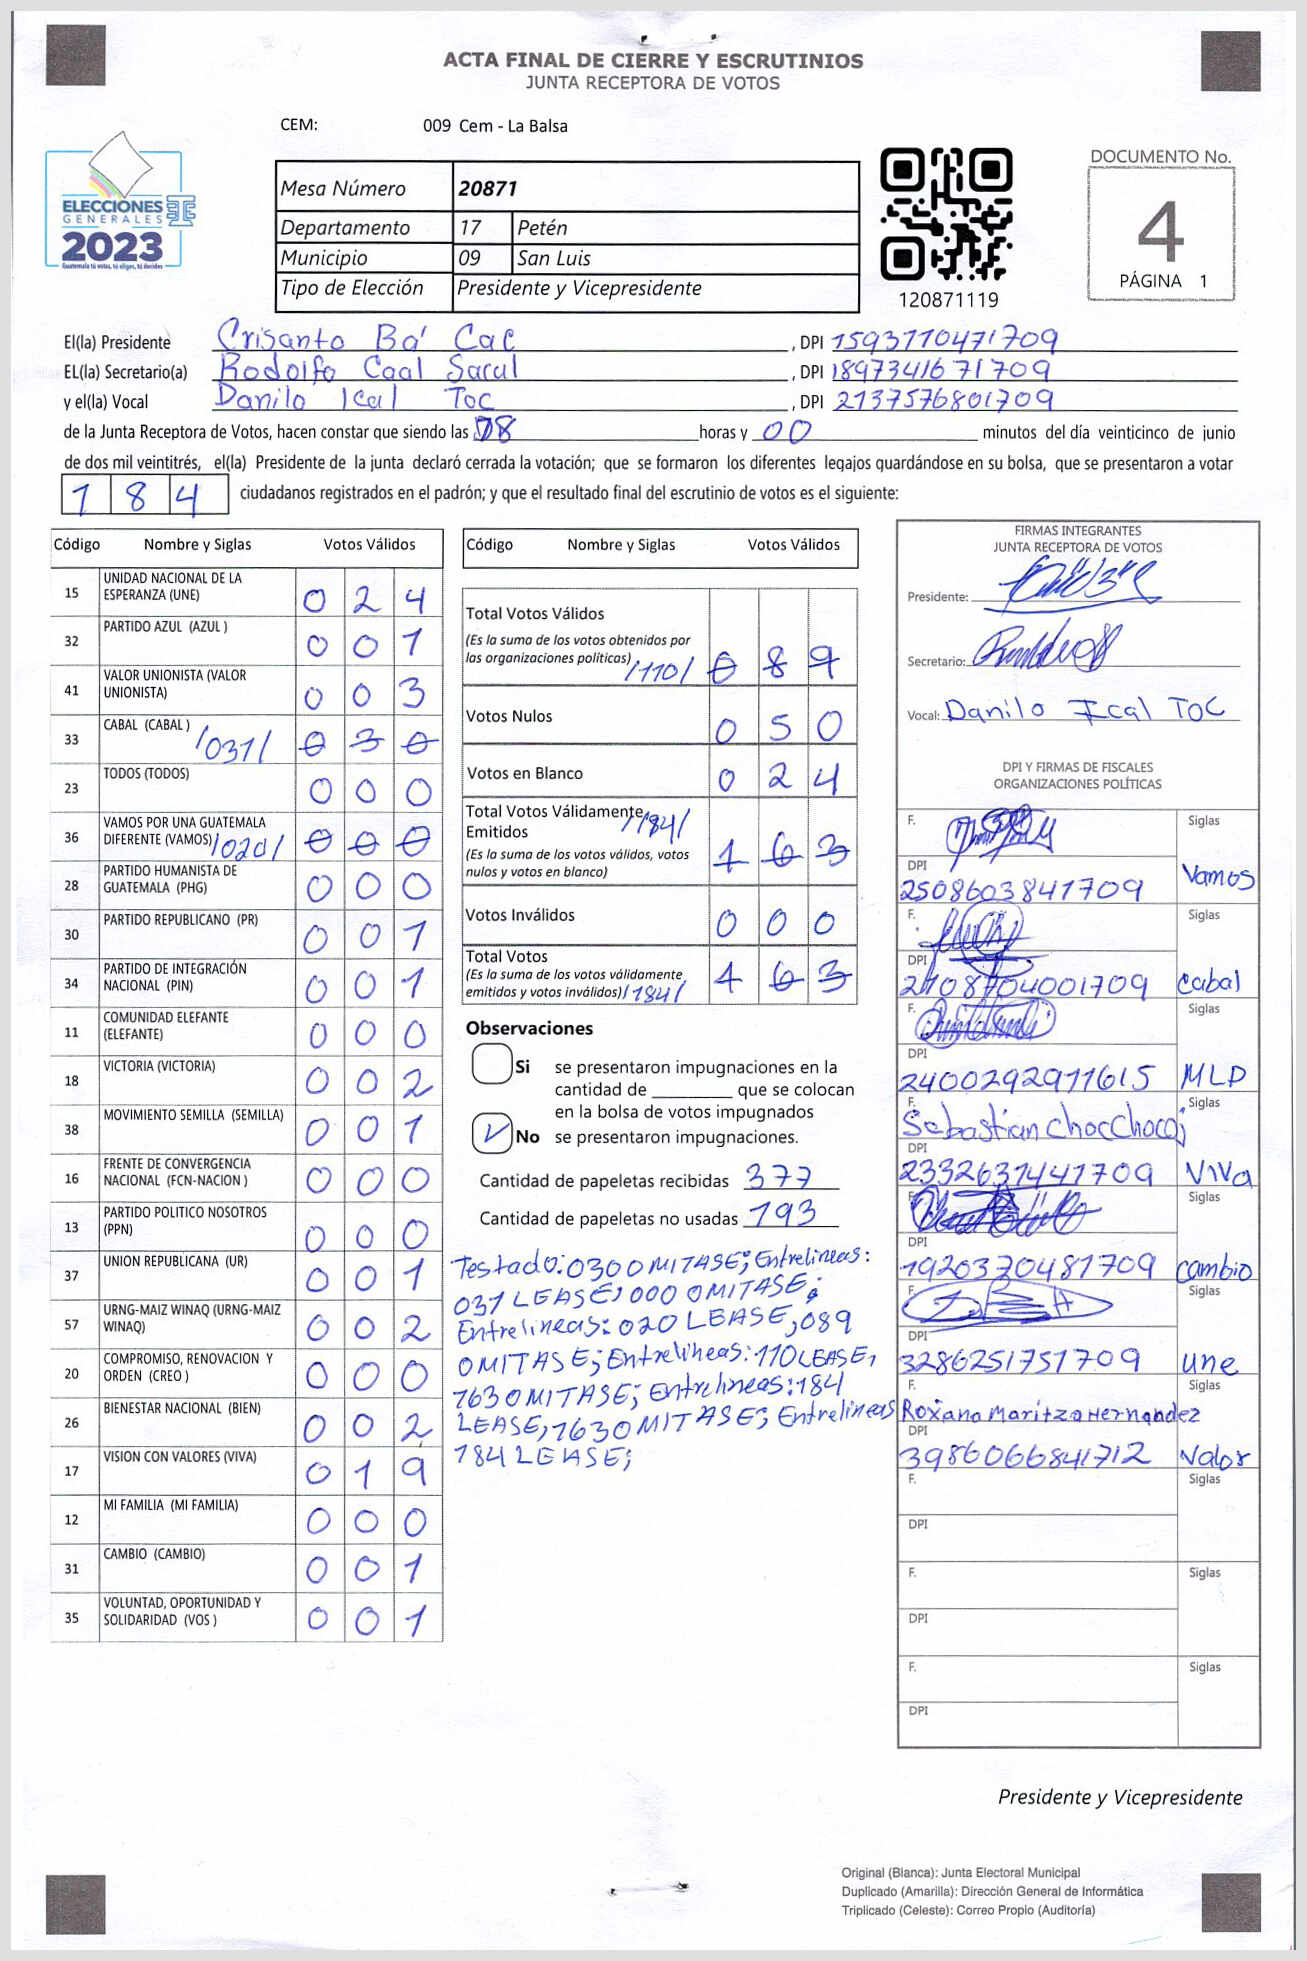 ACTA FINAL DE CIERRE Y ESCRUTINIOS
JUNTA RECEPTORA DE VOTOS
CEM: 009 Cem - La Balsa
ELECCIONES
GENERALES
2023
Guatemala tú votas, tú eliges, tú decides
Mesa Número 20871
Departamento 17 Petén
Municipio 09 San Luis
Tipo de Elección Presidente y Vicepresidente
120871119
DOCUMENTO No.
4
PÁGINA 1
El(la) Presidente Crisanto Ba' Cac, DPI 1593770471709
EL(la) Secretario(a) Rodolfo Caal Sacul, DPI 1897341671709
y el(la) Vocal Danilo Ical Toc, DPI 2137576801709
de la Junta Receptora de Votos, hacen constar que siendo las 08 horas y 00 minutos del día veinticinco de junio
de dos mil veintitrés, el(la) Presidente de la junta declaró cerrada la votación; que se formaron los diferentes legajos guardándose en su bolsa, que se presentaron a votar
184 ciudadanos registrados en el padrón; y que el resultado final del escrutinio de votos es el siguiente:
Código Nombre y Siglas Votos Válidos
15 UNIDAD NACIONAL DE LA
ESPERANZA (UNE) 0 2 4
32 PARTIDO AZUL (AZUL ) 0 0 1
41 VALOR UNIONISTA (VALOR
UNIONISTA) 0 0 3
33 CABAL (CABAL ) /031/ 0 3 0
23 TODOS (TODOS) 0 0 0
36 VAMOS POR UNA GUATEMALA
DIFERENTE (VAMOS) /020/ 0 0 0
28 PARTIDO HUMANISTA DE
GUATEMALA (PHG) 0 0 0
30 PARTIDO REPUBLICANO (PR) 0 0 1
34 PARTIDO DE INTEGRACIÓN
NACIONAL (PIN) 0 0 1
11 COMUNIDAD ELEFANTE
(ELEFANTE) 0 0 0
18 VICTORIA (VICTORIA) 0 0 2
38 MOVIMIENTO SEMILLA (SEMILLA) 0 0 1
16 FRENTE DE CONVERGENCIA
NACIONAL (FCN-NACION ) 0 0 0
13 PARTIDO POLITICO NOSOTROS
(PPN) 0 0 0
37 UNION REPUBLICANA (UR) 0 0 1
57 URNG-MAIZ WINAQ (URNG-MAIZ
WINAQ) 0 0 2
20 COMPROMISO, RENOVACION Y
ORDEN (CREO ) 0 0 0
26 BIENESTAR NACIONAL (BIEN) 0 0 2
17 VISION CON VALORES (VIVA) 0 1 9
12 MI FAMILIA (MI FAMILIA) 0 0 0
31 CAMBIO (CAMBIO) 0 0 1
35 VOLUNTAD, OPORTUNIDAD Y
SOLIDARIDAD (VOS ) 0 0 1
Código Nombre y Siglas Votos Válidos
Total Votos Válidos
(Es la suma de los votos obtenidos por
las organizaciones políticas) /110/ 0 8 9
Votos Nulos 0 5 0
Votos en Blanco 0 2 4
Total Votos Válidamente
Emitidos /184/
(Es la suma de los votos válidos, votos
nulos y votos en blanco) 1 6 3
Votos Inválidos 0 0 0
Total Votos
(Es la suma de los votos válidamente
emitidos y votos inválidos) /184/ 1 6 3
Observaciones
Si se presentaron impugnaciones en la
cantidad de ________ que se colocan
en la bolsa de votos impugnados
No se presentaron impugnaciones.
Cantidad de papeletas recibidas 377
Cantidad de papeletas no usadas 193
Testado: 030 OMITASE; Entrelineas:
031 LEASE, 000 OMITASE;
Entrelineas: 020 LEASE, 089
OMITASE; Entrelineas: 110 LEASE,
163 OMITASE; Entrelineas: 184
LEASE, 163 OMITASE; Entrelineas
184 LEASE;
FIRMAS INTEGRANTES
JUNTA RECEPTORA DE VOTOS
Presidente:
Secretario:
Vocal: Danilo Ical Toc
DPI Y FIRMAS DE FISCALES
ORGANIZACIONES POLÍTICAS
F. Siglas
DPI
2508603841709 Vamos
F. Siglas
DPI
2108704001709 Cabal
F. Siglas
DPI
2400292911615 MLP
F. Siglas
Sebastian Choc Chocoj
DPI
2332631441709 VIVA
F. Siglas
DPI
1920370481709 cambio
F. Siglas
DPI
3286251751709 une
F. Siglas
Roxana Maritza Hernandez
DPI
3986066841712 Valor
F. Siglas
DPI
F. Siglas
DPI
F. Siglas
DPI
Presidente y Vicepresidente
Original (Blanca): Junta Electoral Municipal
Duplicado (Amarilla): Dirección General de Informática
Triplicado (Celeste): Correo Propio (Auditoría)